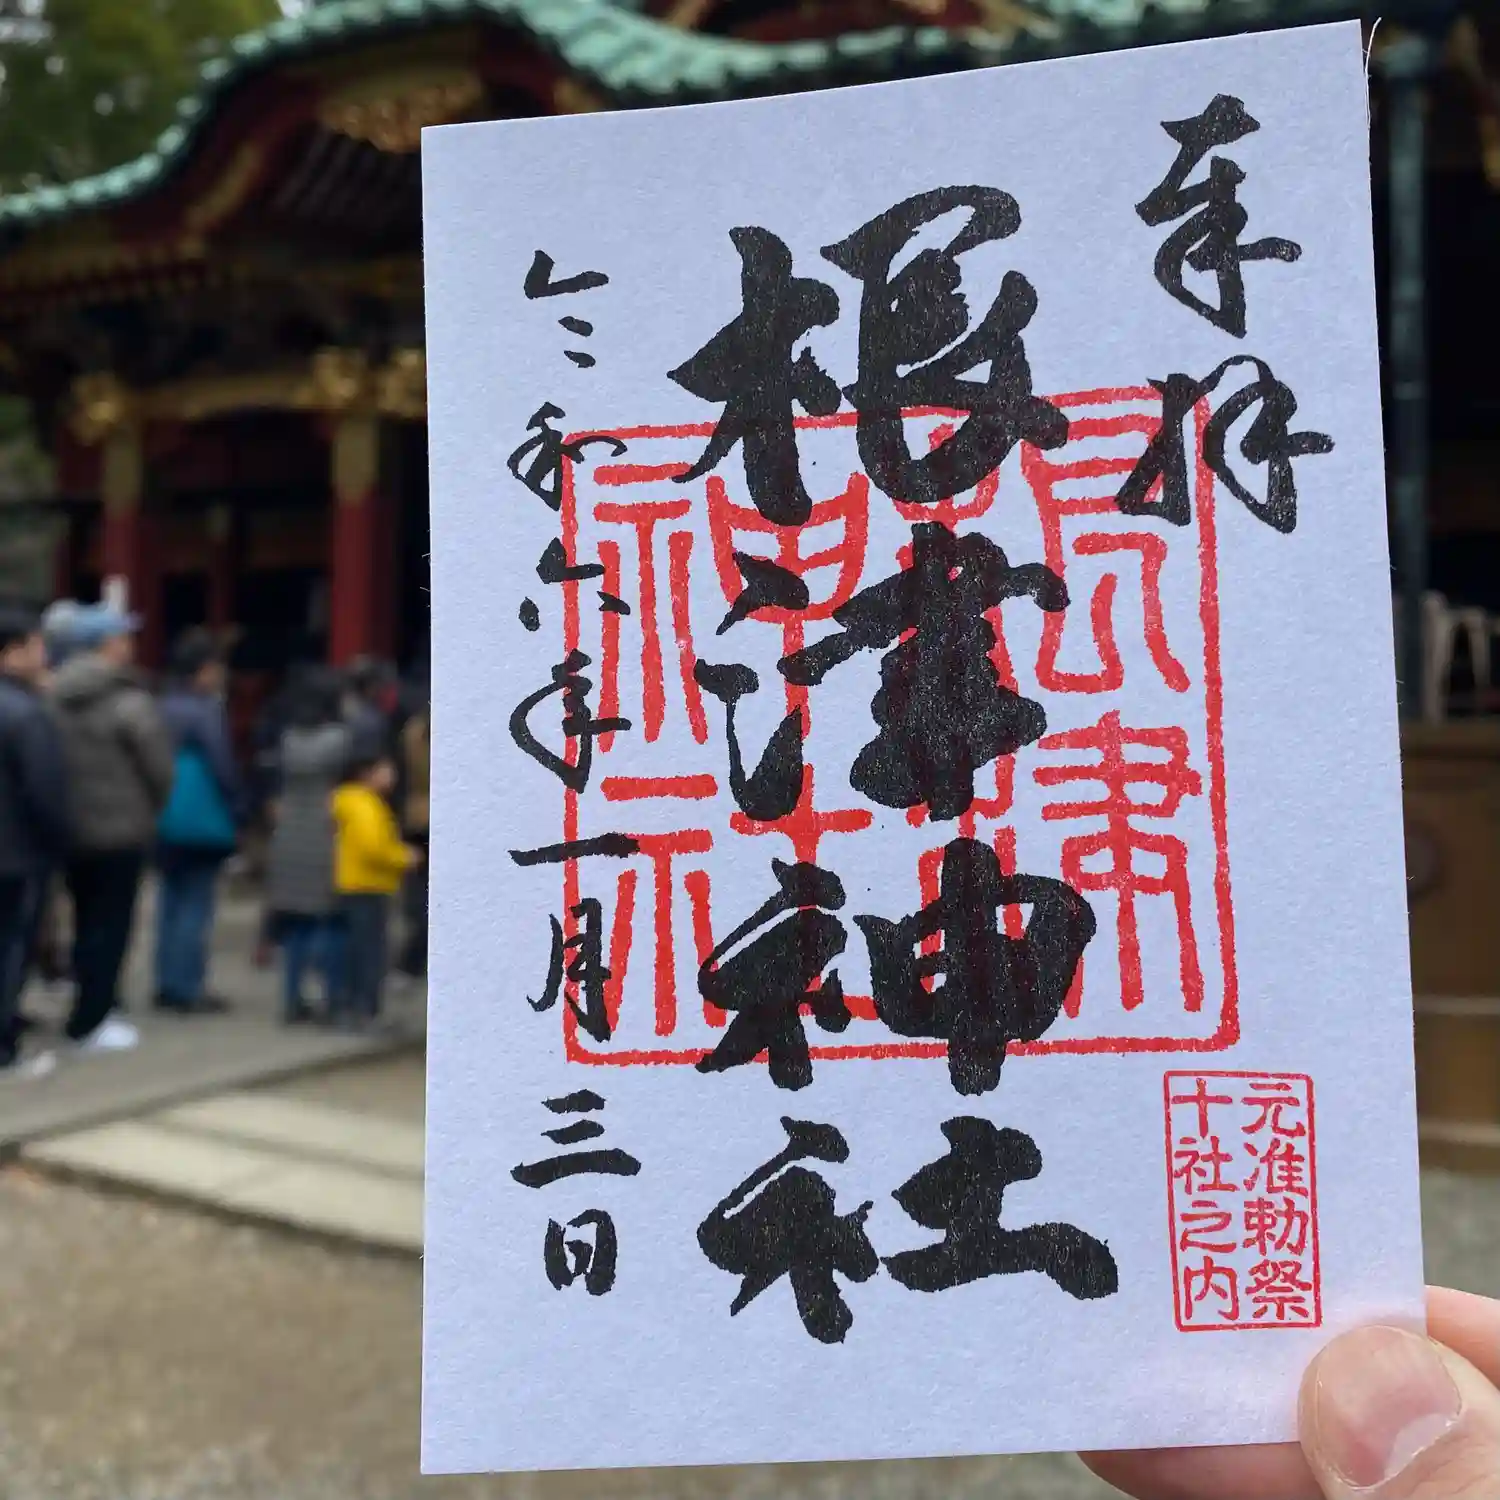 奉拝
根津神社
令和六年一月三日
根津
神社
元准勅祭
十社之内